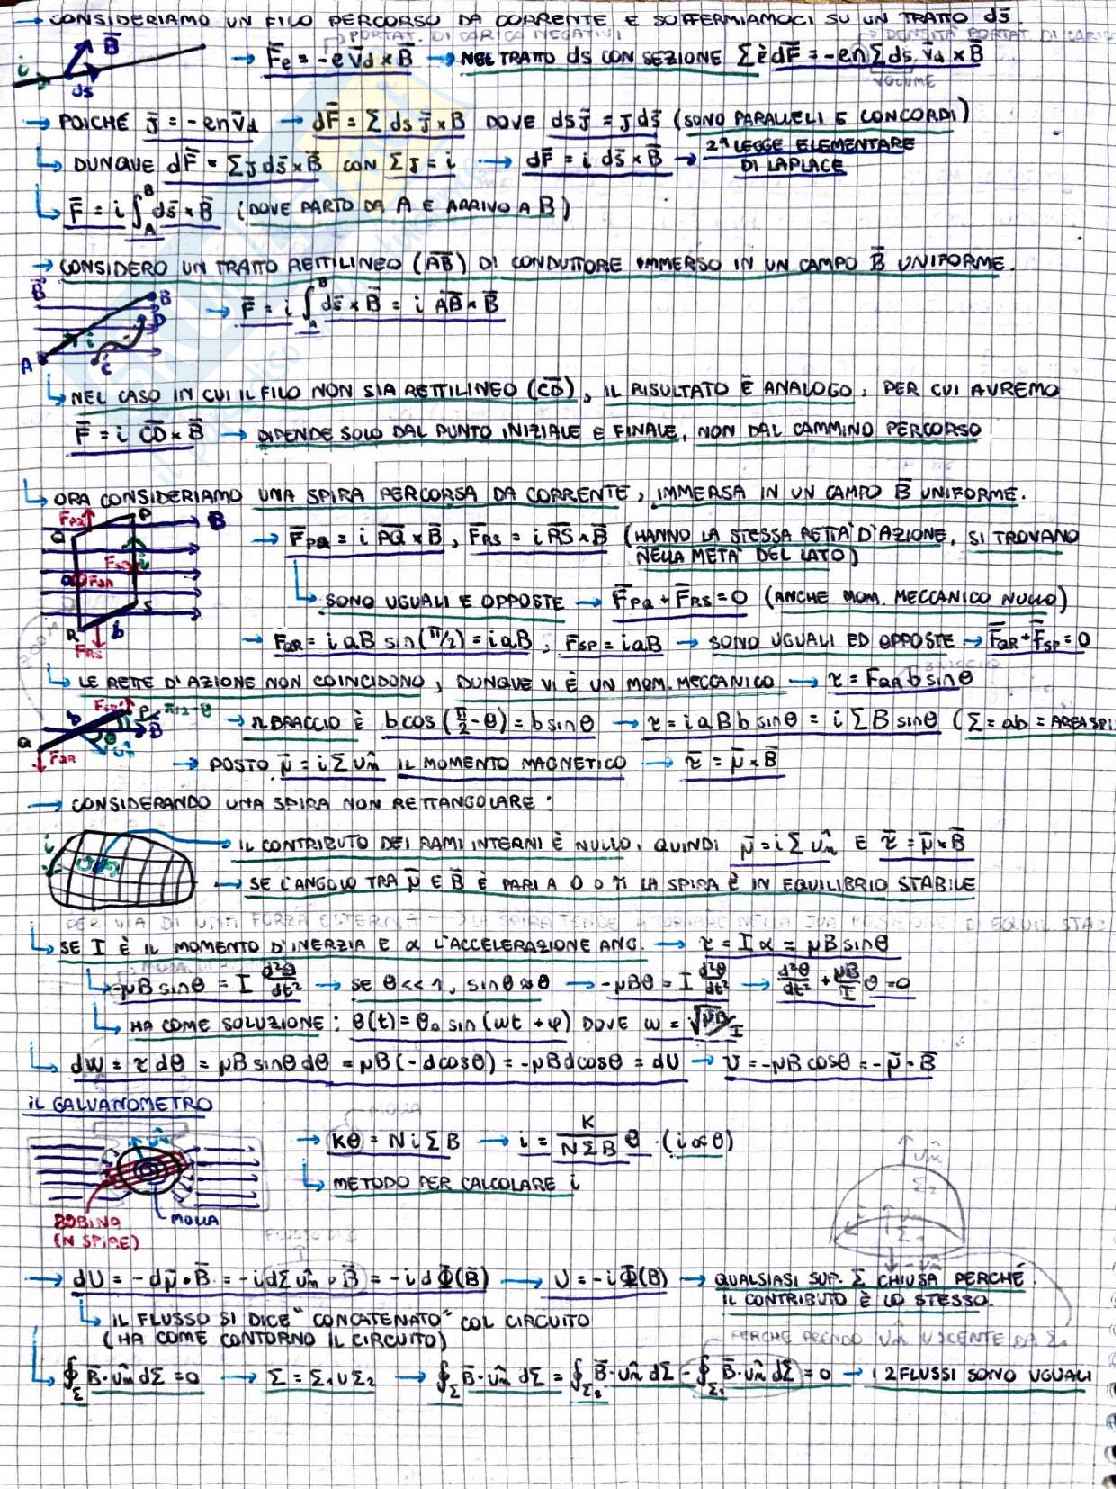 → CONSIDERIAMO UN FILO PERCORSO DA CORRENTE E SOFFERMIAMOCI SU UN TRATTO ds⃗.
PORTAT. DI CARICA NEGATIVI
i B⃗ ds⃗ → F⃗e = -e v⃗d × B⃗ → NEL TRATTO ds CON SEZIONE Σ è dF⃗ = -enΣ ds v⃗d × B⃗
VOLUME
→ POICHÉ j⃗ = -en v⃗d → dF⃗ = Σ ds j⃗ × B⃗ DOVE ds j⃗ = j ds⃗ (SONO PARALLELI E CONCORDI)
↳ DUNQUE dF⃗ = Σ j ds⃗ × B⃗ CON Σ j = i → dF⃗ = i ds⃗ × B⃗ → 2ª LEGGE ELEMENTARE DI LAPLACE
↳ F⃗ = i ∫_A^B ds⃗ × B⃗ (DOVE PARTO DA A E ARRIVO A B)
→ CONSIDERO UN TRATTO RETTILINEO (AB) DI CONDUTTORE IMMERSO IN UN CAMPO B⃗ UNIFORME.
B⃗ B D i A C → F⃗ = i ∫_A^B ds⃗ × B⃗ = i AB × B⃗
↳ NEL CASO IN CUI IL FILO NON SIA RETTILINEO (CD), IL RISULTATO È ANALOGO, PER CUI AVREMO
F⃗ = i CD × B⃗ → DIPENDE SOLO DAL PUNTO INIZIALE E FINALE, NON DAL CAMMINO PERCORSO
↳ ORA CONSIDERIAMO UNA SPIRA PERCORSA DA CORRENTE, IMMERSA IN UN CAMPO B⃗ UNIFORME.
F⃗PQ P Q B⃗ → F⃗PQ = i PQ × B⃗, F⃗RS = i RS × B⃗ (HANNO LA STESSA RETTA D'AZIONE, SI TROVANO NELLA METÀ DEL LATO)
R b S ↳ SONO UGUALI E OPPOSTE → F⃗PQ + F⃗RS = 0 (ANCHE MOM. MECCANICO NULLO)
F⃗RS → FQR = i a B sin(π/2) = i a B, FSP = i a B → SONO UGUALI ED OPPOSTE → F⃗QR + F⃗SP = 0
↳ LE RETTE D'AZIONE NON COINCIDONO, DUNQUE VI È UN MOM. MECCANICO → τ = FQR b sinθ
→ IL BRACCIO È b cos(π/2 - θ) = b sinθ → τ = i a B b sinθ = i Σ B sinθ (Σ = ab = AREA SPI
→ POSTO μ⃗ = i Σ ûn IL MOMENTO MAGNETICO → τ⃗ = μ⃗ × B⃗
→ CONSIDERANDO UNA SPIRA NON RETTANGOLARE:
→ IL CONTRIBUTO DEI RAMI INTERNI È NULLO, QUINDI μ⃗ = i Σ ûn E τ⃗ = μ⃗ × B⃗
→ SE L'ANGOLO TRA μ⃗ E B⃗ È PARI A 0 O π LA SPIRA È IN EQUILIBRIO STABILE
↳ SE I È IL MOMENTO D'INERZIA E α L'ACCELERAZIONE ANG. → τ = I α = μB sinθ
↳ -μB sinθ = I d²θ/dt² → SE θ << 1, sinθ ≈ θ → -μBθ = I d²θ/dt² → d²θ/dt² + μB/I θ = 0
↳ HA COME SOLUZIONE: θ(t) = θ₀ sin(ωt + φ) DOVE ω = √μB/I
↳ dW = τ dθ = μB sinθ dθ = μB(-dcosθ) = -μB dcosθ = dU → U = -μB cosθ = -μ⃗ · B⃗
IL GALVANOMETRO
→ kθ = N i Σ B → i = K/NΣB θ (i ∝ θ)
↳ METODO PER CALCOLARE i
BOBINA (N SPIRE) MOLLA
→ dU = -dμ⃗ · B⃗ = -i dΣ ûn · B⃗ = -i dΦ(B⃗) → U = -i Φ(B) → QUALSIASI SUP. Σ CHIUSA PERCHÉ IL CONTRIBUTO È LO STESSO.
↳ IL FLUSSO SI DICE "CONCATENATO" COL CIRCUITO
(HA COME CONTORNO IL CIRCUITO)
PERCHÉ PRENDO ûn USCENTE DA Σ₁
↳ ∮_Σ B⃗ · ûn dΣ = 0 → Σ = Σ₁ ∪ Σ₂ → ∮_Σ B⃗ · ûn dΣ = ∮_Σ₂ B⃗ · ûn dΣ - ∮_Σ₁ B⃗ · ûn dΣ = 0 → I 2 FLUSSI SONO UGUALI